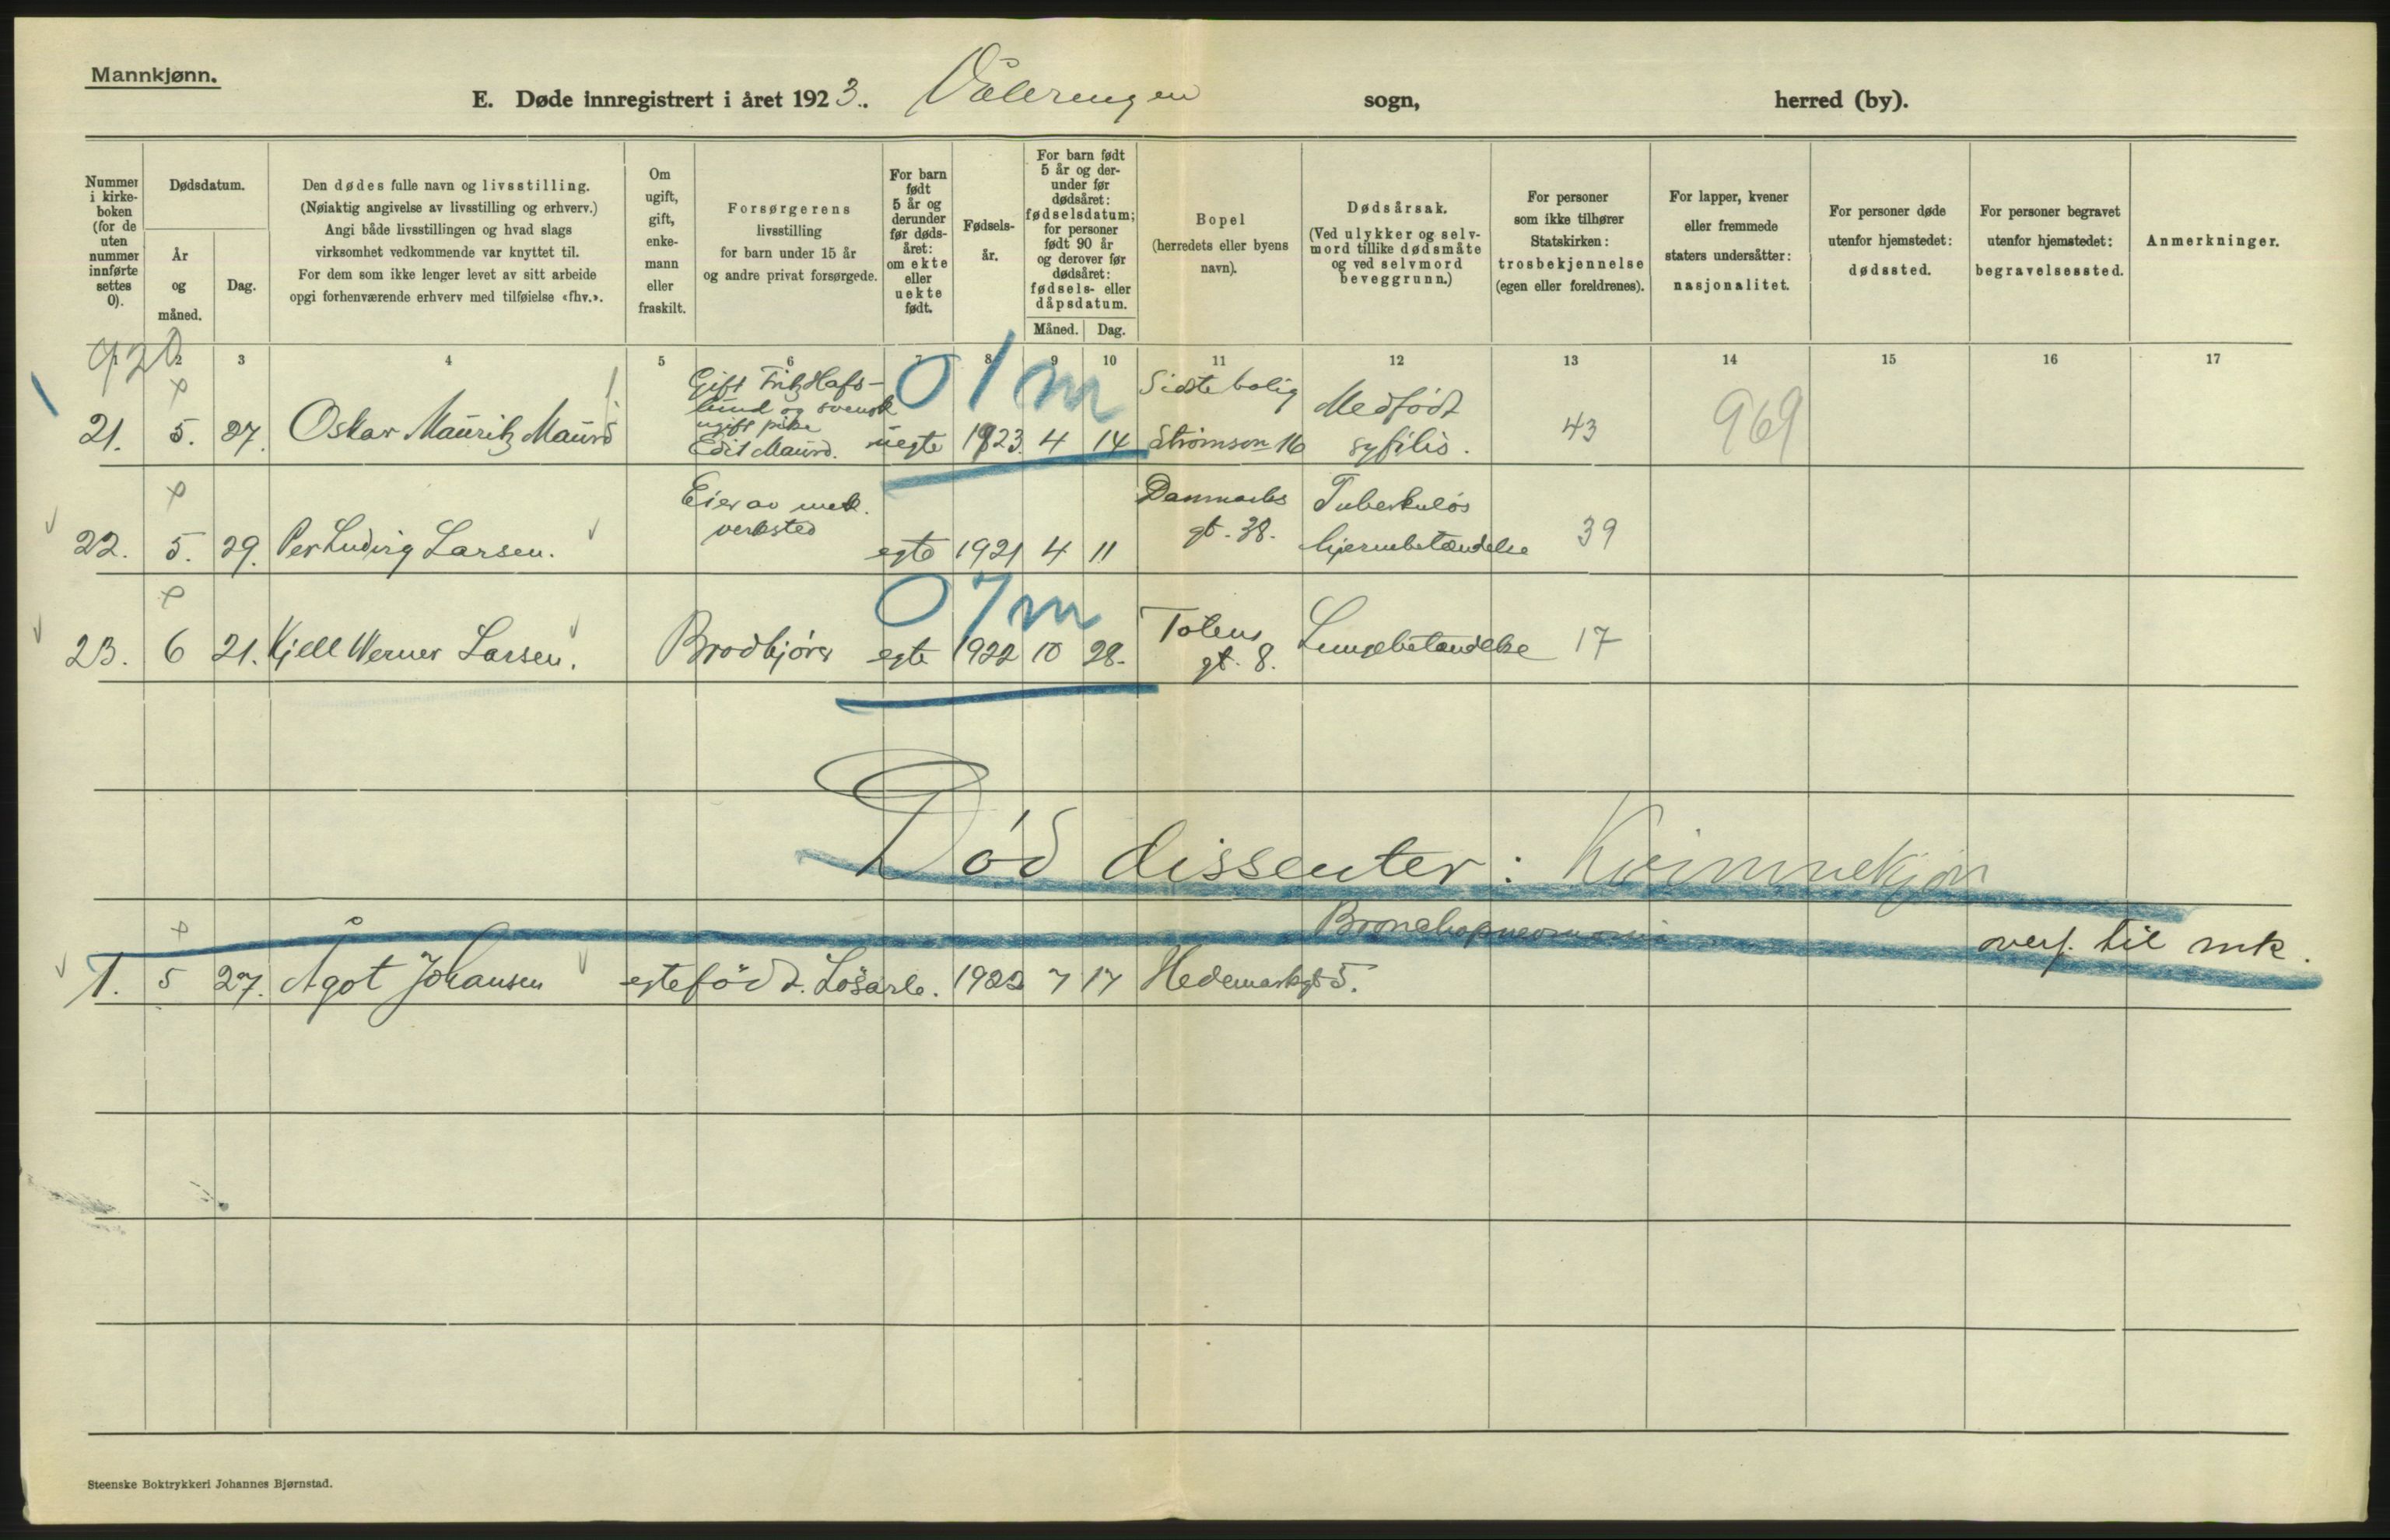 Mannkjønn.
E. Døde innregistrert i året 1923. Vålerengen sogn, herred (by).
Nummer i kirke-boken (for de uten nummer innførte settes 0).
Dødsdatum.
År og måned.
Dag.
Den dødes fulle navn og livsstilling.
(Nøiaktig angivelse av livsstilling og erhverv.)
Angi både livsstillingen og hvad slags
virksomhet vedkommende var knyttet til.
For dem som ikke lenger levet av sitt arbeide
opgi forhenværende erhverv med tilføielse «fhv.».
Om ugift, gift, enke-mann eller fraskilt.
Forsørgerens
livsstilling
for barn under 15 år
og andre privat forsørgede.
For barn født 5 år og derunder før døds-året: om ekte eller uekte født.
Fødsels-år.
For barn født 5 år og der-under før dødsåret: fødselsdatum; for personer født 90 år og derover før dødsåret: fødsels- eller dåpsdatum.
Måned. Dag.
Bopel
(herredets eller byens
navn).
Dødsårsak.
(Ved ulykker og selv-
mord tillike dødsmåte
og ved selvmord
beveggrunn.)
For personer
som ikke tilhører
Statskirken:
trosbekjennelse
(egen eller foreldrenes).
For lapper, kvener
eller fremmede
staters undersåtter:
nasjonalitet.
For personer døde
utenfor hjemstedet:
dødssted.
For personer begravet
utenfor hjemstedet:
begravelsessted.
Anmerkninger.
2 3 4 5 6 7 8 9 10 11 12 13 14 15 16 17
920
01 m
21. 5. 27. Oskar Mauritz Maurd Gift Fritz Hafs-
lund og svensk
ugift pike
Edit Maurd. uegte 1923. 4 14 Sidste bolig
Strömson 16 Medfödt
syfilis. 43 969
22. 5. 29. Per Ludvig Larsen. Eier av mek.
verksted egte 1921 4 11 Danmarks
gt. 38. Tuberkuløs
hjernebetændelse 39
07 m
23. 6 21. Kjell Werner Larsen. Brødkjører egte 1922 10 28. Totens
gt. 8. Lungebetændelse 17
Død dissenter: Kvinnekjøn
Bronchopneumoni
overf. til mk.
1. 5 27. Ågot Johansen egtefödt. Løsarb. 1922 7 17 Hedemarksgt 5.
Steenske Boktrykkeri Johannes Bjørnstad.